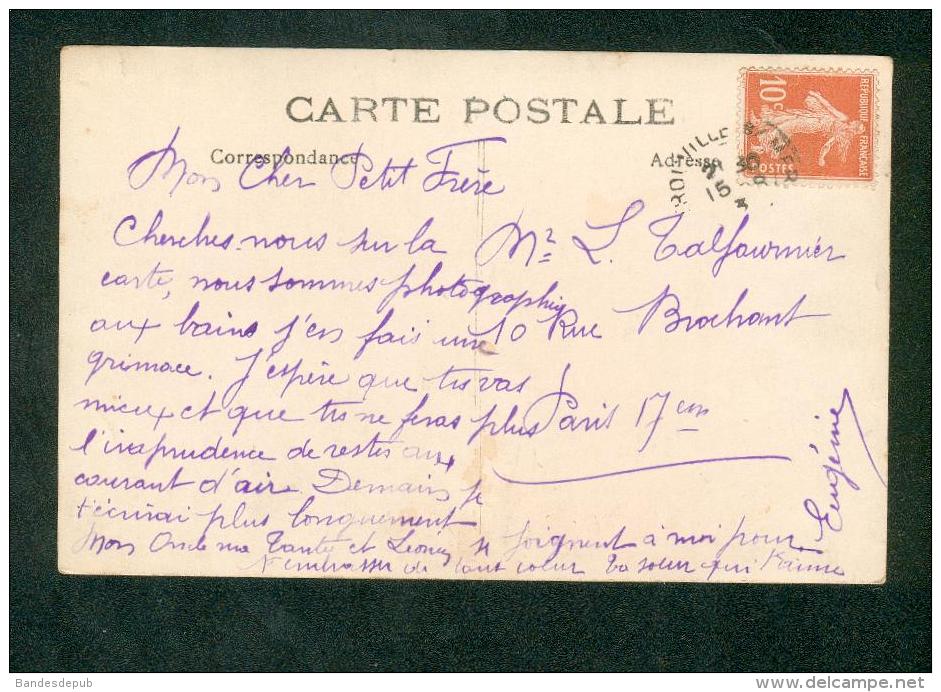 CARTE POSTALE
Correspondance
Adresse
10 c
REPUBLIQUE FRANÇAISE
POSTES
15
Mon Cher Petit Frère
Cherches-nous sur la
carte, nous sommes photographiés
aux bains j'en fais une
grimace. J'espère que tu vas
mieux et que tu ne feras plus
l'imprudence de restes aux
courant d'air. Demain je
t'écrirai plus longuement
Mon Oncle ma Tante et Léonie se joignent à moi pour
t'embrasser de tout coeur ta soeur qui t'aime
Eugénie
Mr L. Talfournier
10 Rue Brochant
Paris 17em
Bandesdepub
www.delcampe.net